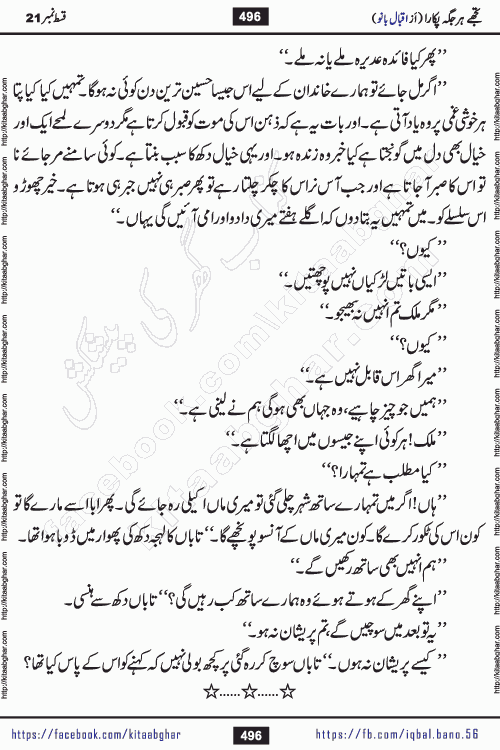 تجھے ہر جگہ پکارا (از اقبال بانو)
496
قسط نمبر 21
’’پھر کیا فائدہ عدیرہ ملے یا نہ ملے۔‘‘
’’اگر مل جائے تو ہمارے خاندان کے لیے اس جیسا حسین ترین دن کوئی نہ ہوگا۔ تمہیں کیا کیا پتا
ہر خوشی غمی پر وہ یاد آتی ہے۔ اور بات یہ ہے کہ ذہن اس کی موت کو قبول کرتا ہے مگر دوسرے لمحے ایک اور
خیال بھی دل میں گونجتا ہے کیا خبر وہ زندہ ہو۔ اور یہی خیال دکھ کا سبب بنتا ہے۔ کوئی سامنے مر جائے نا
تو اس کا صبر آ جاتا ہے اور جب آس نراس کا چکر چلتا رہے تو پھر صبر ہی نہیں جبر ہی ہوتا ہے۔ خیر چھوڑو
اس سلسلے کو۔ میں تمہیں یہ بتا دوں کہ اگلے ہفتے میری دادو اور امی آئیں گی یہاں۔‘‘
’’کیوں؟‘‘
’’ایسی باتیں لڑکیاں نہیں پوچھتیں۔‘‘
’’مگر ملک تم انہیں نہ بھیجو۔‘‘
’’کیوں؟‘‘
’’میرا گھر اس قابل نہیں ہے۔‘‘
’’ہمیں جو چیز چاہیے، وہ جہاں بھی ہوگی ہم نے لینی ہے۔‘‘
’’ملک! ہر کوئی اپنے جیسوں میں اچھا لگتا ہے۔‘‘
’’کیا مطلب ہے تمہارا؟‘‘
’’ہاں! اگر میں تمہارے ساتھ شہر چلی گئی تو میری ماں اکیلی رہ جائے گی۔ پھر ابا اسے مارے گا تو
کون اس کی ٹکور کرے گا۔ کون میری ماں کے آنسو پونچھے گا۔‘‘ تاباں کا لہجہ دکھ کی پھوار میں ڈوبا ہوا تھا۔
’’ہم انہیں بھی ساتھ رکھیں گے۔‘‘
’’اپنے گھر کے ہوتے ہوئے وہ ہمارے ساتھ کب رہیں گی؟‘‘ تاباں دکھ سے ہنسی۔
’’یہ تو بعد میں سوچیں گے، تم پریشان نہ ہو۔‘‘
’’کیسے پریشان نہ ہوں۔‘‘ تاباں سوچ کر رہ گئی پر کچھ بولی نہیں کہ کہنے کو اس کے پاس کیا تھا؟
☆......☆......☆
https://facebook.com/kitaabghar
496
https://fb.com/iqbal.bano.56
http://kitaabghar.com
کتاب گھر کی پیشکش
facebook.com/kitaabghar
kitaabghar.com